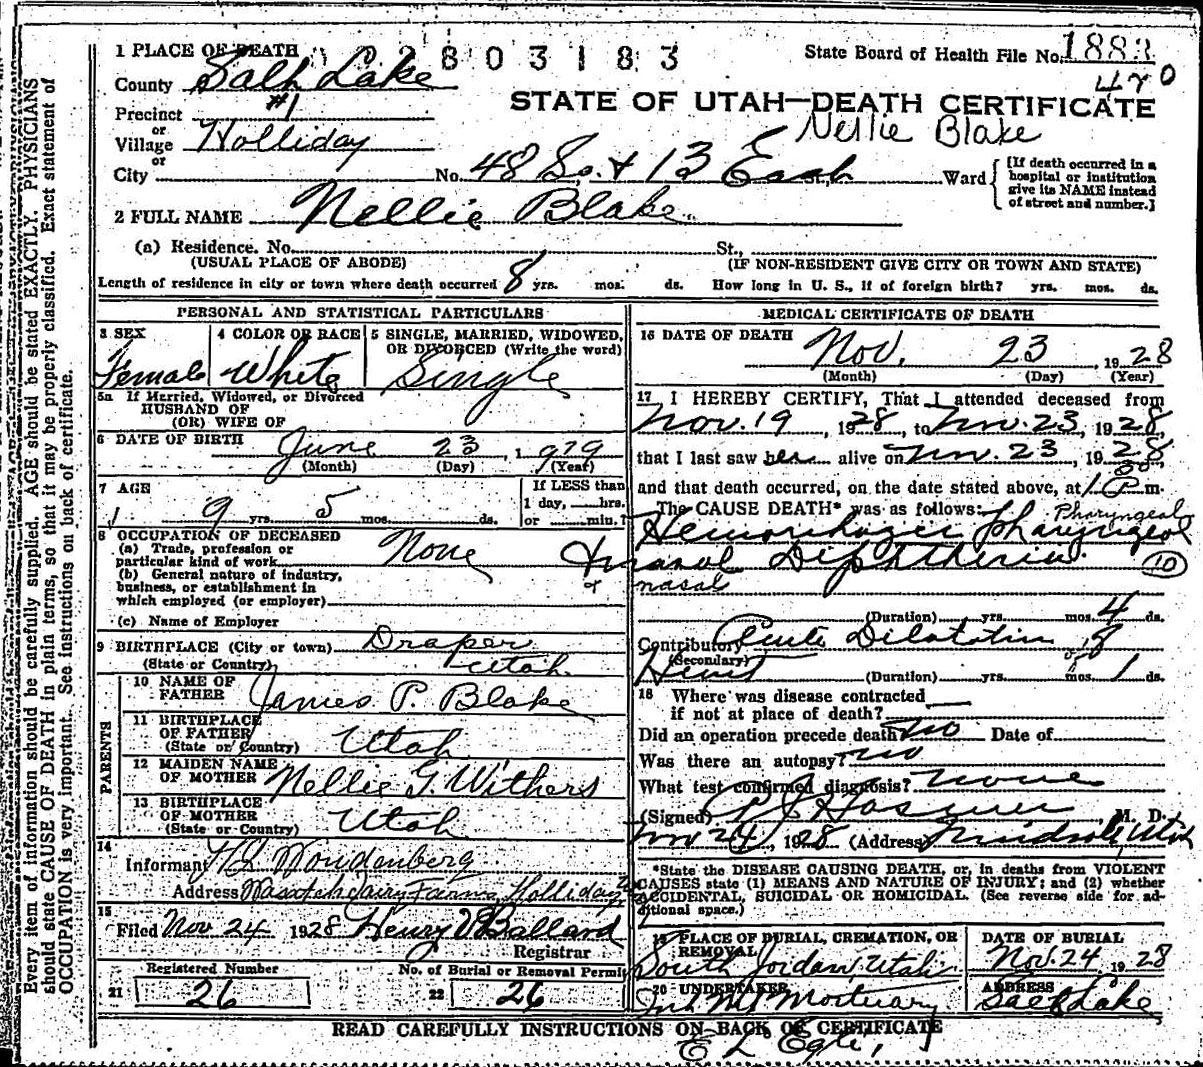 1 PLACE OF DEATH
2803183
State Board of Health File No. 1883
420
County Salt Lake
STATE OF UTAH—DEATH CERTIFICATE
Precinct #1
Nellie Blake
or
Village Holliday
or
City No. 48 So. + 13 East St., Ward
[If death occurred in a hospital or institution give its NAME instead of street and number.]
2 FULL NAME Nellie Blake
(a) Residence. No. St.,
(USUAL PLACE OF ABODE) (IF NON-RESIDENT GIVE CITY OR TOWN AND STATE)
Length of residence in city or town where death occurred 8 yrs. mos. ds. How long in U. S., if of foreign birth? yrs. mos. ds.
PERSONAL AND STATISTICAL PARTICULARS
3 SEX Female
4 COLOR OR RACE White
5 SINGLE, MARRIED, WIDOWED, OR DIVORCED (Write the word) Single
5a If Married, Widowed, or Divorced
HUSBAND OF
(OR) WIFE OF
6 DATE OF BIRTH June 23, 1 979
(Month) (Day) (Year)
7 AGE 9 yrs. 5 mos. ds.
If LESS than 1 day, hrs. or min.?
8 OCCUPATION OF DECEASED
(a) Trade, profession or particular kind of work None
(b) General nature of industry, business, or establishment in which employed (or employer)
(c) Name of Employer
9 BIRTHPLACE (City or town) Draper
(State or Country) Utah
PARENTS
10 NAME OF FATHER James P. Blake
11 BIRTHPLACE OF FATHER (State or Country) Utah
12 MAIDEN NAME OF MOTHER Nellie G. Withers
13 BIRTHPLACE OF MOTHER (State or Country) Utah
14
Informant Woudenberg
Address Wasatch Dairy Farms, Holliday
15
Filed Nov 24 1928 Henry V Ballard
Registrar
Registered Number
21 26
No. of Burial or Removal Permit
22 26
MEDICAL CERTIFICATE OF DEATH
16 DATE OF DEATH Nov. 23 1928
(Month) (Day) (Year)
17 I HEREBY CERTIFY, That I attended deceased from
Nov. 19, 1928, to Nov. 23, 1928,
that I last saw her alive on Nov. 23, 1928,
and that death occurred, on the date stated above, at 1 P m.
The CAUSE DEATH* was as follows: Pharyngeal
Hemorrhagic pharyngeal
+ nasal Diphtheria 10
+ nasal
(Duration) yrs. mos. 4 ds.
Contributory Acute Dilatation of
(Secondary) Heart (Duration) yrs. mos. 1 ds.
18 Where was disease contracted
if not at place of death? —
Did an operation precede death No Date of
Was there an autopsy? No
What test confirmed diagnosis? none
(Signed) M. D.
Nov 24, 1928 (Address) Midvale, Utah
*State the DISEASE CAUSING DEATH, or, in deaths from VIOLENT
CAUSES state (1) MEANS AND NATURE OF INJURY; and (2) whether
ACCIDENTAL, SUICIDAL OR HOMICIDAL. (See reverse side for additional space.)
19 PLACE OF BURIAL, CREMATION, OR REMOVAL South Jordan, Utah
DATE OF BURIAL Nov. 24 1928
20 UNDERTAKER Mortuary
ADDRESS Salt Lake
READ CAREFULLY INSTRUCTIONS ON BACK OF CERTIFICATE
E L Egli,
Every item of information should be carefully supplied. AGE should be stated EXACTLY. PHYSICIANS
should state CAUSE OF DEATH in plain terms, so that it may be properly classified. Exact statement of
OCCUPATION is very important. See instructions on back of certificate.